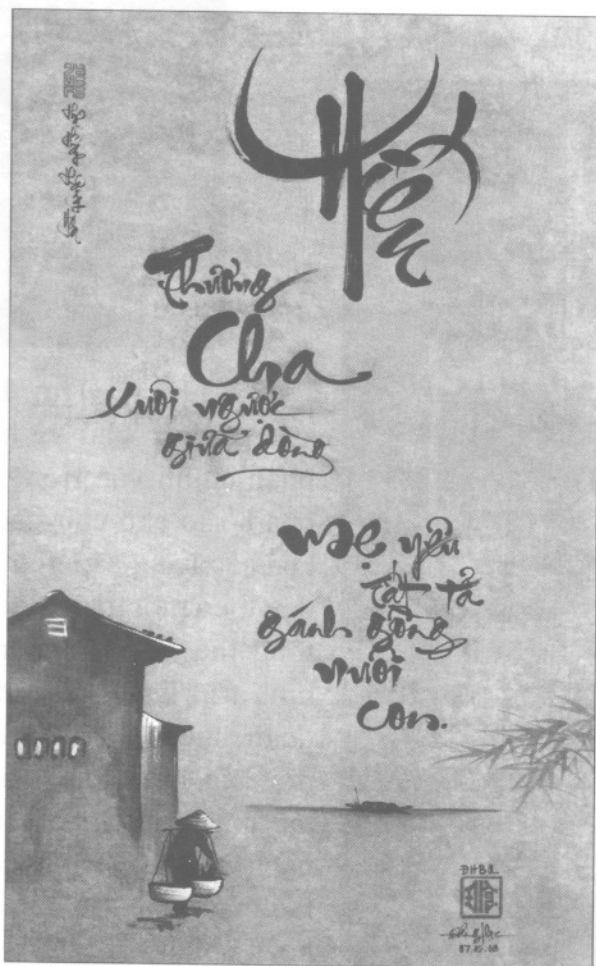 Thương
Cha
xuôi ngược
giữa dòng
Mẹ yêu
tất tả
gánh gồng
nuôi
con.